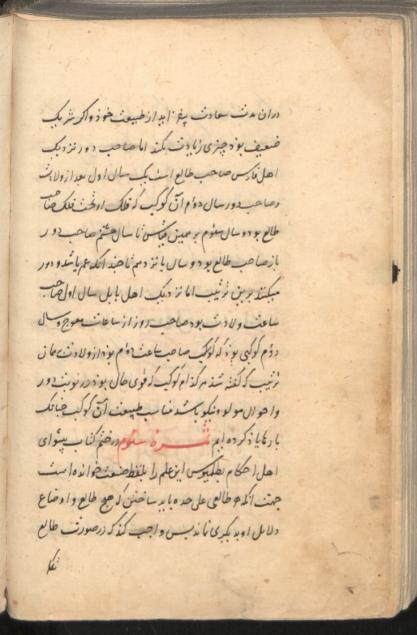 دران مدت سعادت بیفزاید از طبیعت خود و اکر شریک
ضعیف بود چیزی زیادت نکند اما صاحب دور نزدیک
اهل فارس صاحب طالع است یک سال اول بعد از ولادت
و صاحب دور سال دوم آن کوکب که فلک او تحت فلک صاحب
طالع بود و سال سوم برهمین قیاس تا سال هشتم صاحب دور
باز صاحب طالع بود و سال پانزدهم تا چند انکه عمر باشد و دور
میکنند برین ترتیب اما نزدیک اهل بابل سال اول صاحب
ساعت ولادت بود صاحب روز از ساعات معوج و سال
دوم کوکبی بود که کوکب صاحب ساعت دوم بود از ولادت همان
ترتیب که گفته شد هر کدام کوکب که قوی حال بود در نوبت دور
او احوال مولود نیکو باشد مناسب طبیعت آن کوکب چنانک
بارها یاد کرده ایم ثمره سئوم در ختم کتاب پیشوای
اهل احکام بطلمیوس این علم را بلفظ صنعت خوانده است
جهت انکه هر طالعی علی حده باید ساختن که هیچ طالع و اوضاع
دلایل او بدیکری نماند پس واجب کند که در صورت طالع